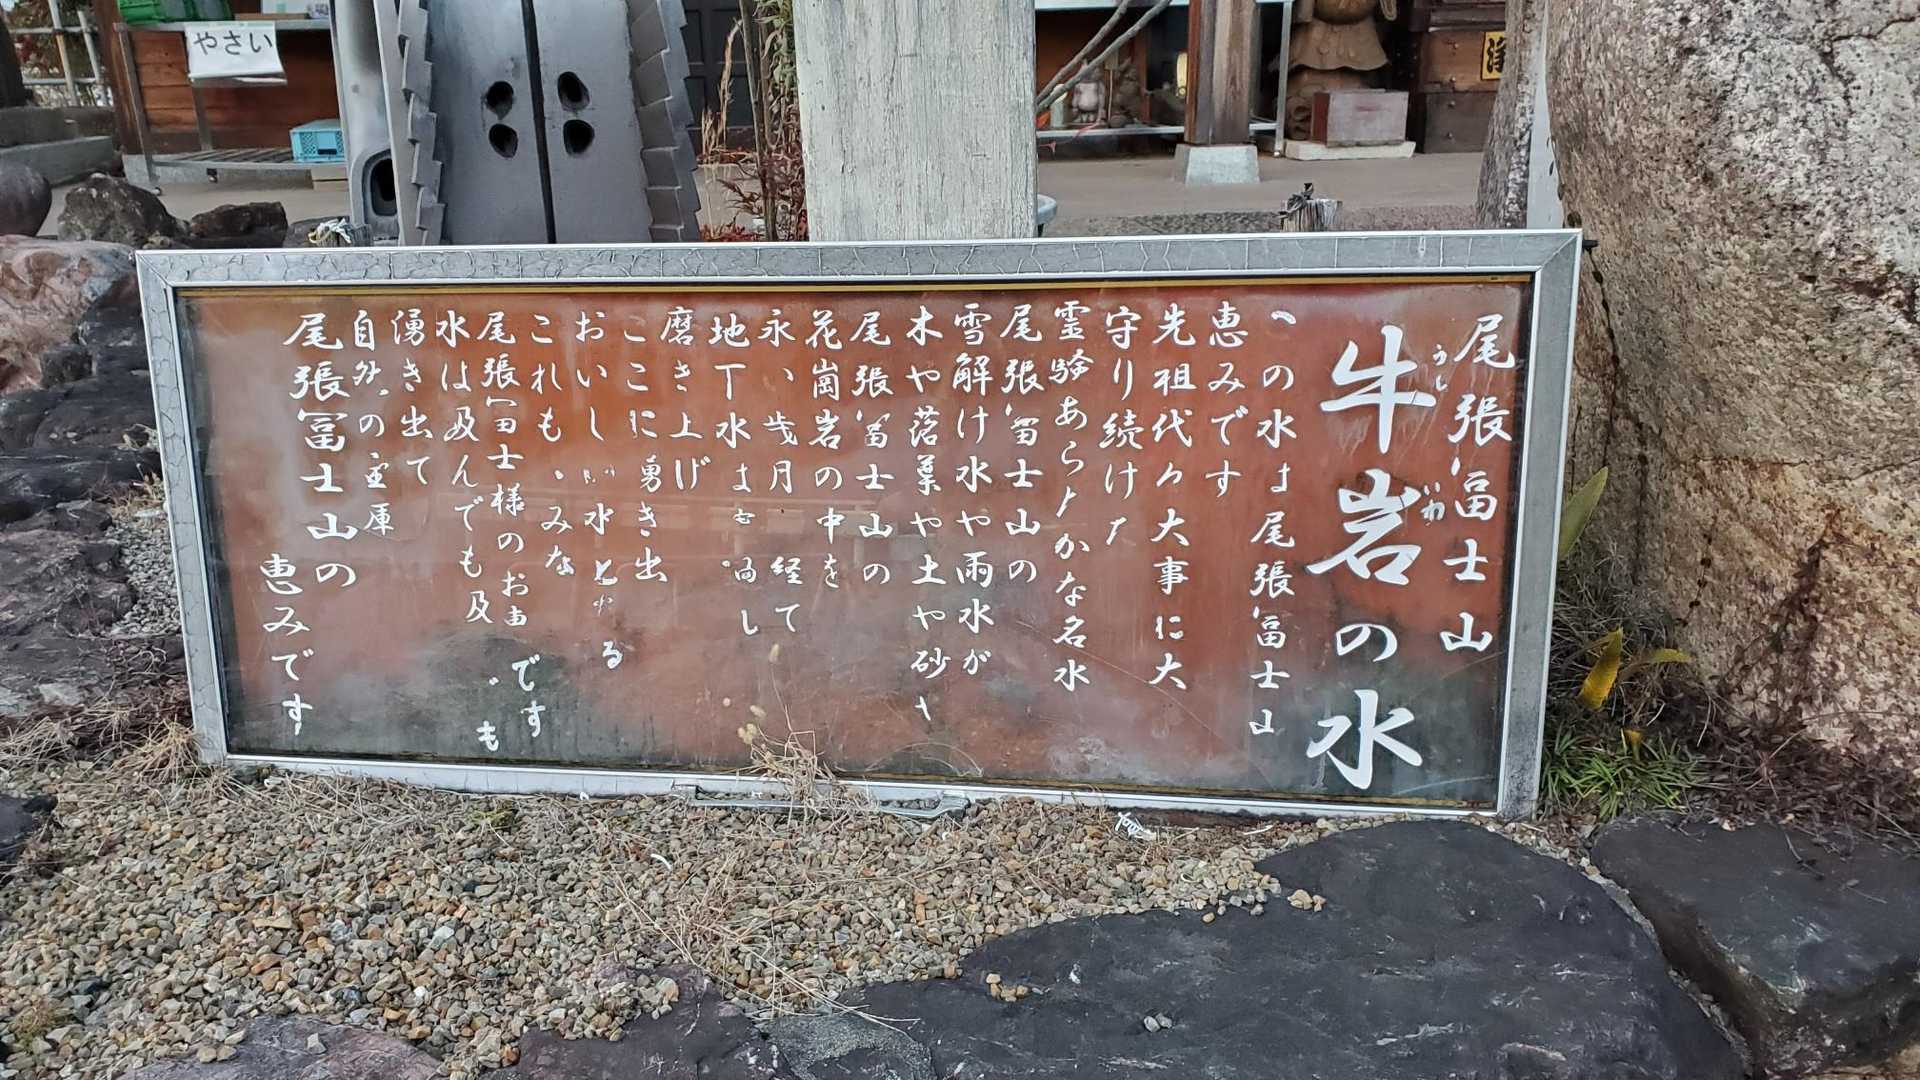 やさい
浄
尾張冨士山
牛岩の水
うし
いわ
の水は尾張冨士山
恵みです
先祖代々大事に大
守り続けた
霊験あらたかな名水
尾張冨士山の
雪解け水や雨水が
木や落葉や土や砂や
尾張冨士山の
花崗岩の中を
永い歳月 経て
地下水は
磨き上げ
ここに湧き出
おいしい水と
これも、みな
尾張冨士様のお です
水は及んでも及 も
湧き出て
自然の宝庫
尾張冨士山の
恵みです